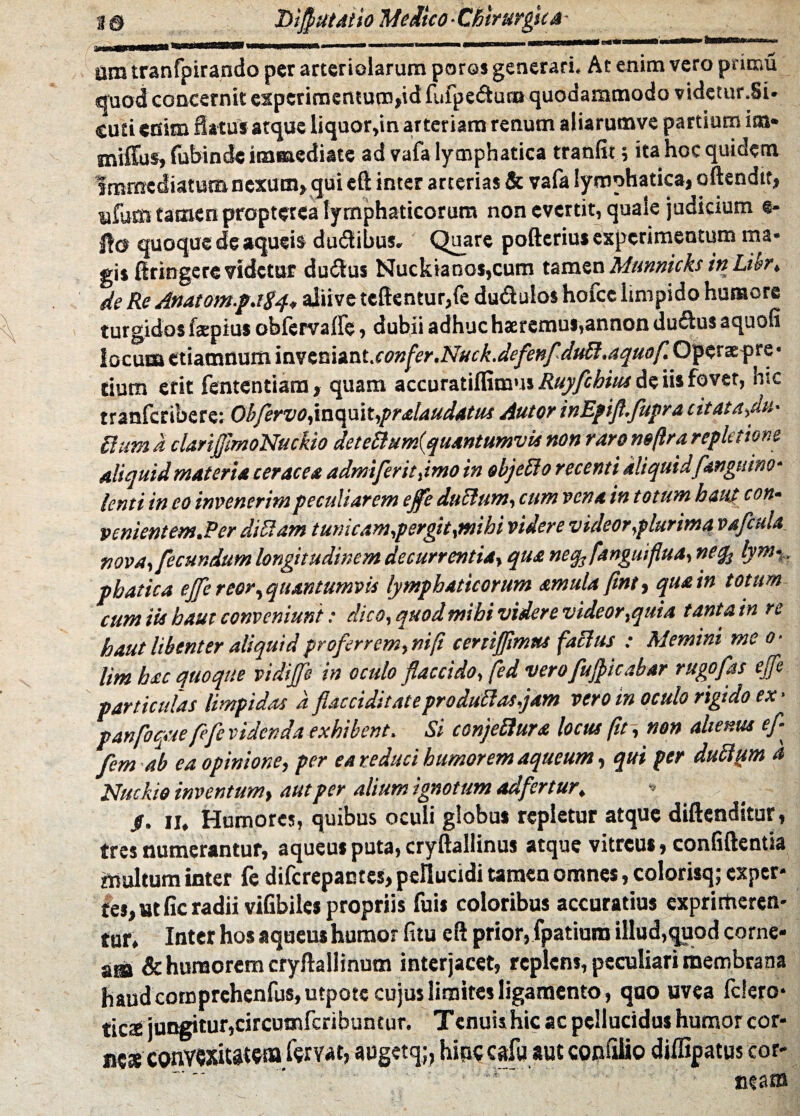 10 Disputatio Medico-Chirurgica
um transpirando per arteriolarum poros generari. At enim vero primũ
quod concernit experimentum,id suspectum quodammodo videtur.Si-
cuti enim flatus atque liquor,in arteriam renum aliarumve partium im-
missus, subinde immediate ad vasa lymphatica transit; ita hoc quidem
immediatum nexum, qui est inter arterias & vasa lymphatica, ostendit,
usum tamen propterea lymphaticorum non evertit, quale judicium e-
sto quoque de aqueis ductibus. Quare posterius experimentum ma-
gis stringere videtur ductus Nuckianos,cum tamen Munnicks in Libr.
de Re Anatom.p.184. aliive testentur,se ductulos hosce limpido humore
turgidos sæpius observasse, dubii adhuc hæremus,annon ductus aquosi
locum etiamnum inveniant.confer.Nuck.defens.duct.aquos. Operæ pre-
tium erit sententiam, quam accuratissimus Ruyschius de iis fovet, hic
transcribere: Observo,inquit,prælaudatus Autor inEpist.supra citata,du-
ctum à clarissimoNuckio detectum(quantumvis non raro nostra repletione
aliquid materiæ ceraceæ admiserit,imo in objecto recenti aliquid sanguino-
lenti in eo invenerim peculiarem esse ductum, cum vena in totum haut con-
venientem.Per dictam tunicam,pergit,mihi videre videor,plurima vascula
nova, secundum longitudinem decurrentia, quæ neq; sanguiflua, neq; lym-
phatica esse reor, quantumvis lymphaticorum æmula sint, quæ in totum
cum iis haut conveniunt: dico, quod mihi videre videor,quia tanta in re
haut libenter aliquid proferrem, nisi certissimus factus: Memini me o-
lim hæc quoque vidisse in oculo flaccido, sed vero suspicabar rugosas esse
particulas limpidas à flacciditate productas,jam vero in oculo rigido ex-
pansoque sese videnda exhibent. Si conjecturæ locus sit, non alienus es-
sem ab ea opinione, per ea reduci humorem aqueum, qui per ductum à
Nuckio inventum, aut per alium ignotum adfertur.
§. 11. Humores, quibus oculi globus repletur atque distenditur,
tres numerantur, aqueus puta, crystallinus atque vitreus, consistentia
multum inter se discrepantes, pellucidi tamen omnes, colorisq; exper-
tes, ut sic radii visibiles propriis suis coloribus accuratius exprimeren-
tur. Inter hos aqueus humor situ est prior, spatium illud,quod corne-
am & humorem crystallinum interjacet, replens, peculiari membrana
haud comprehensus, utpote cujus limites ligamento, quo uvea sclero-
ticæ jungitur,circumscribuntur. Tenuis hic ac pellucidus humor cor-
neæ convexitatem servat, augetq;, hinc casu aut consilio dissipatus cor-
neam